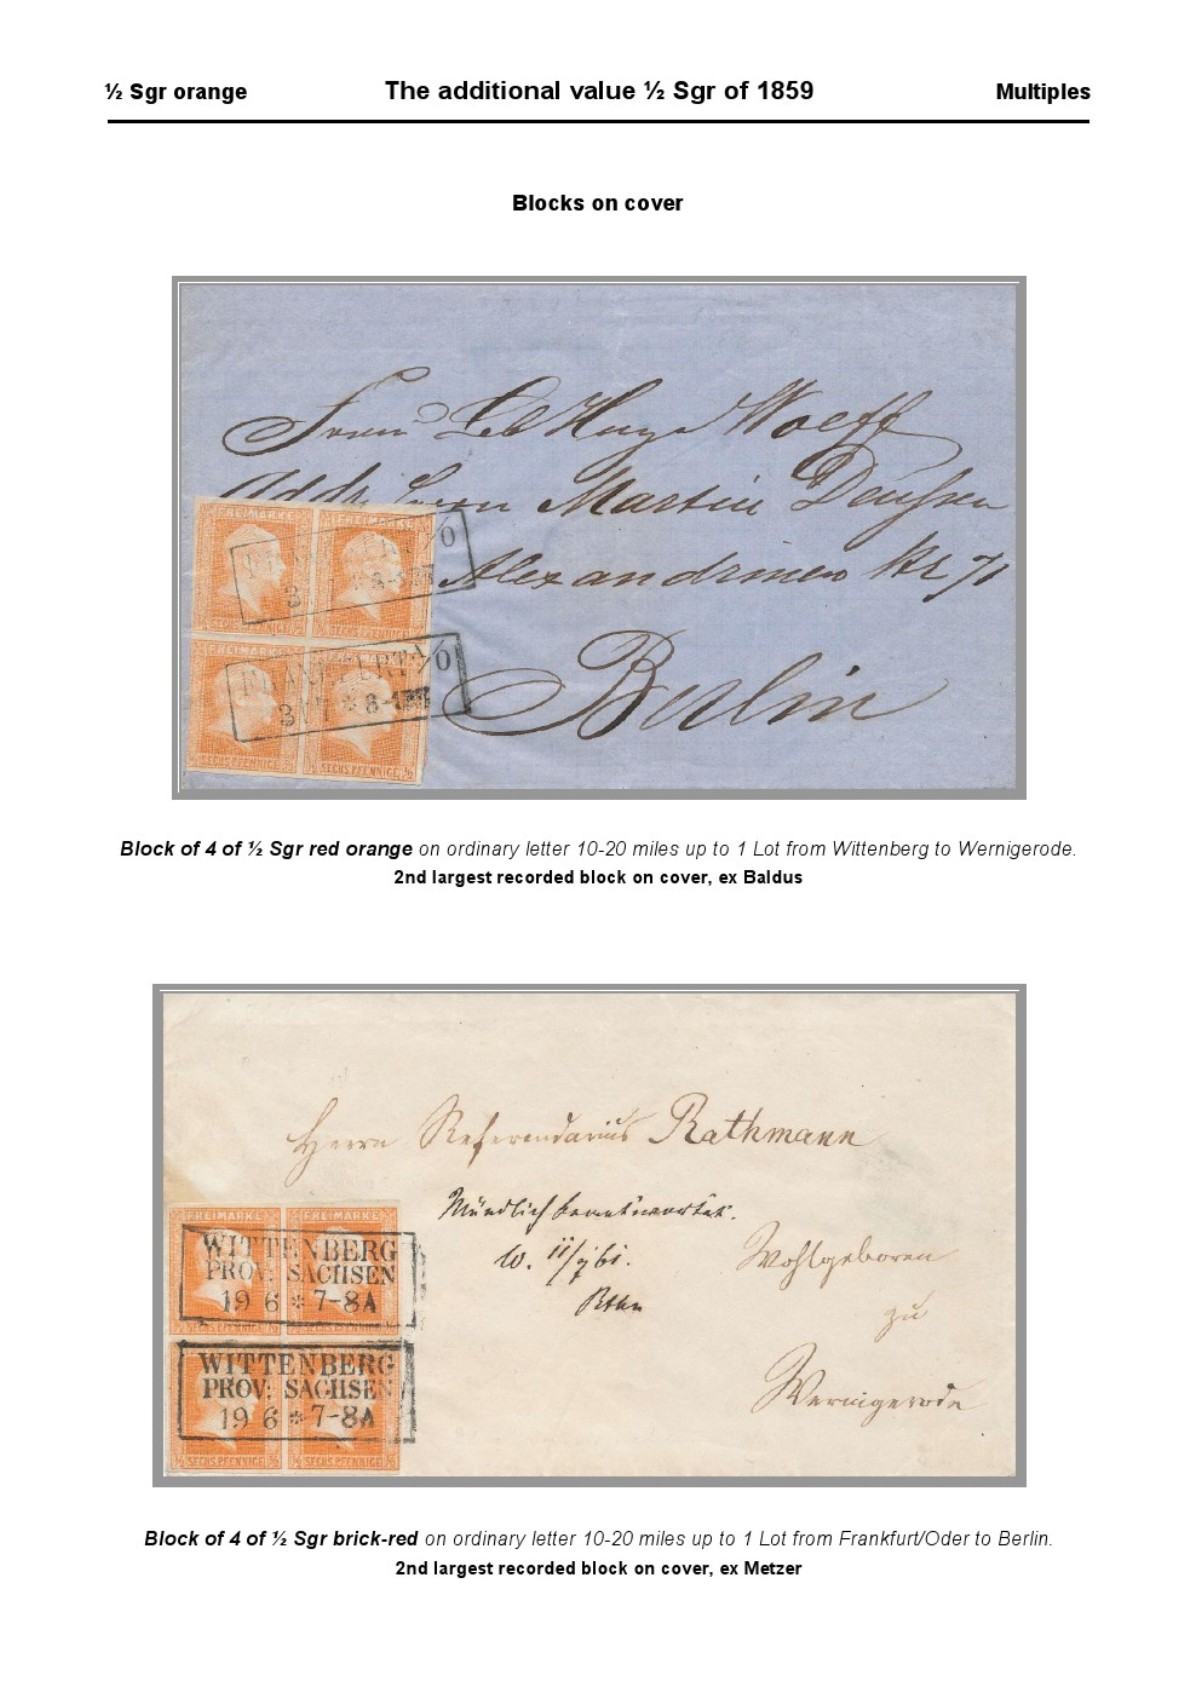 ½ Sgr orange The additional value ½ Sgr of 1859 Multiples
Blocks on cover
Hugo Wolff
Addr. Herrn Martin
Alexandrinen 71
Berlin
FREIMARKE FREIMARKE
FRANKFURT A/O
3 8-1
SECHS PFENNIGE SECHS PFENNIGE
FREIMARKE FREIMARKE
FRANKFURT A/O
31 7 * 8-1
SECHS PFENNIGE SECHS PFENNIGE
Block of 4 of ½ Sgr red orange on ordinary letter 10-20 miles up to 1 Lot from Wittenberg to Wernigerode.
2nd largest recorded block on cover, ex Baldus
Herrn Referendarius Rathmann
Mündlich
W. 11/7 61.
Rthn
Wohlgeboren
zu
Wernigerode
FREIMARKE FREIMARKE
WITTENBERG
PROV: SACHSEN
19 6 * 7-8A
SECHS PFENNIGE SECHS PFENNIGE
WITTENBERG
PROV: SACHSEN
19 6 * 7-8A
½ SECHS PFENNIGE ½ ½ SECHS PFENNIGE ½
Block of 4 of ½ Sgr brick-red on ordinary letter 10-20 miles up to 1 Lot from Frankfurt/Oder to Berlin.
2nd largest recorded block on cover, ex Metzer